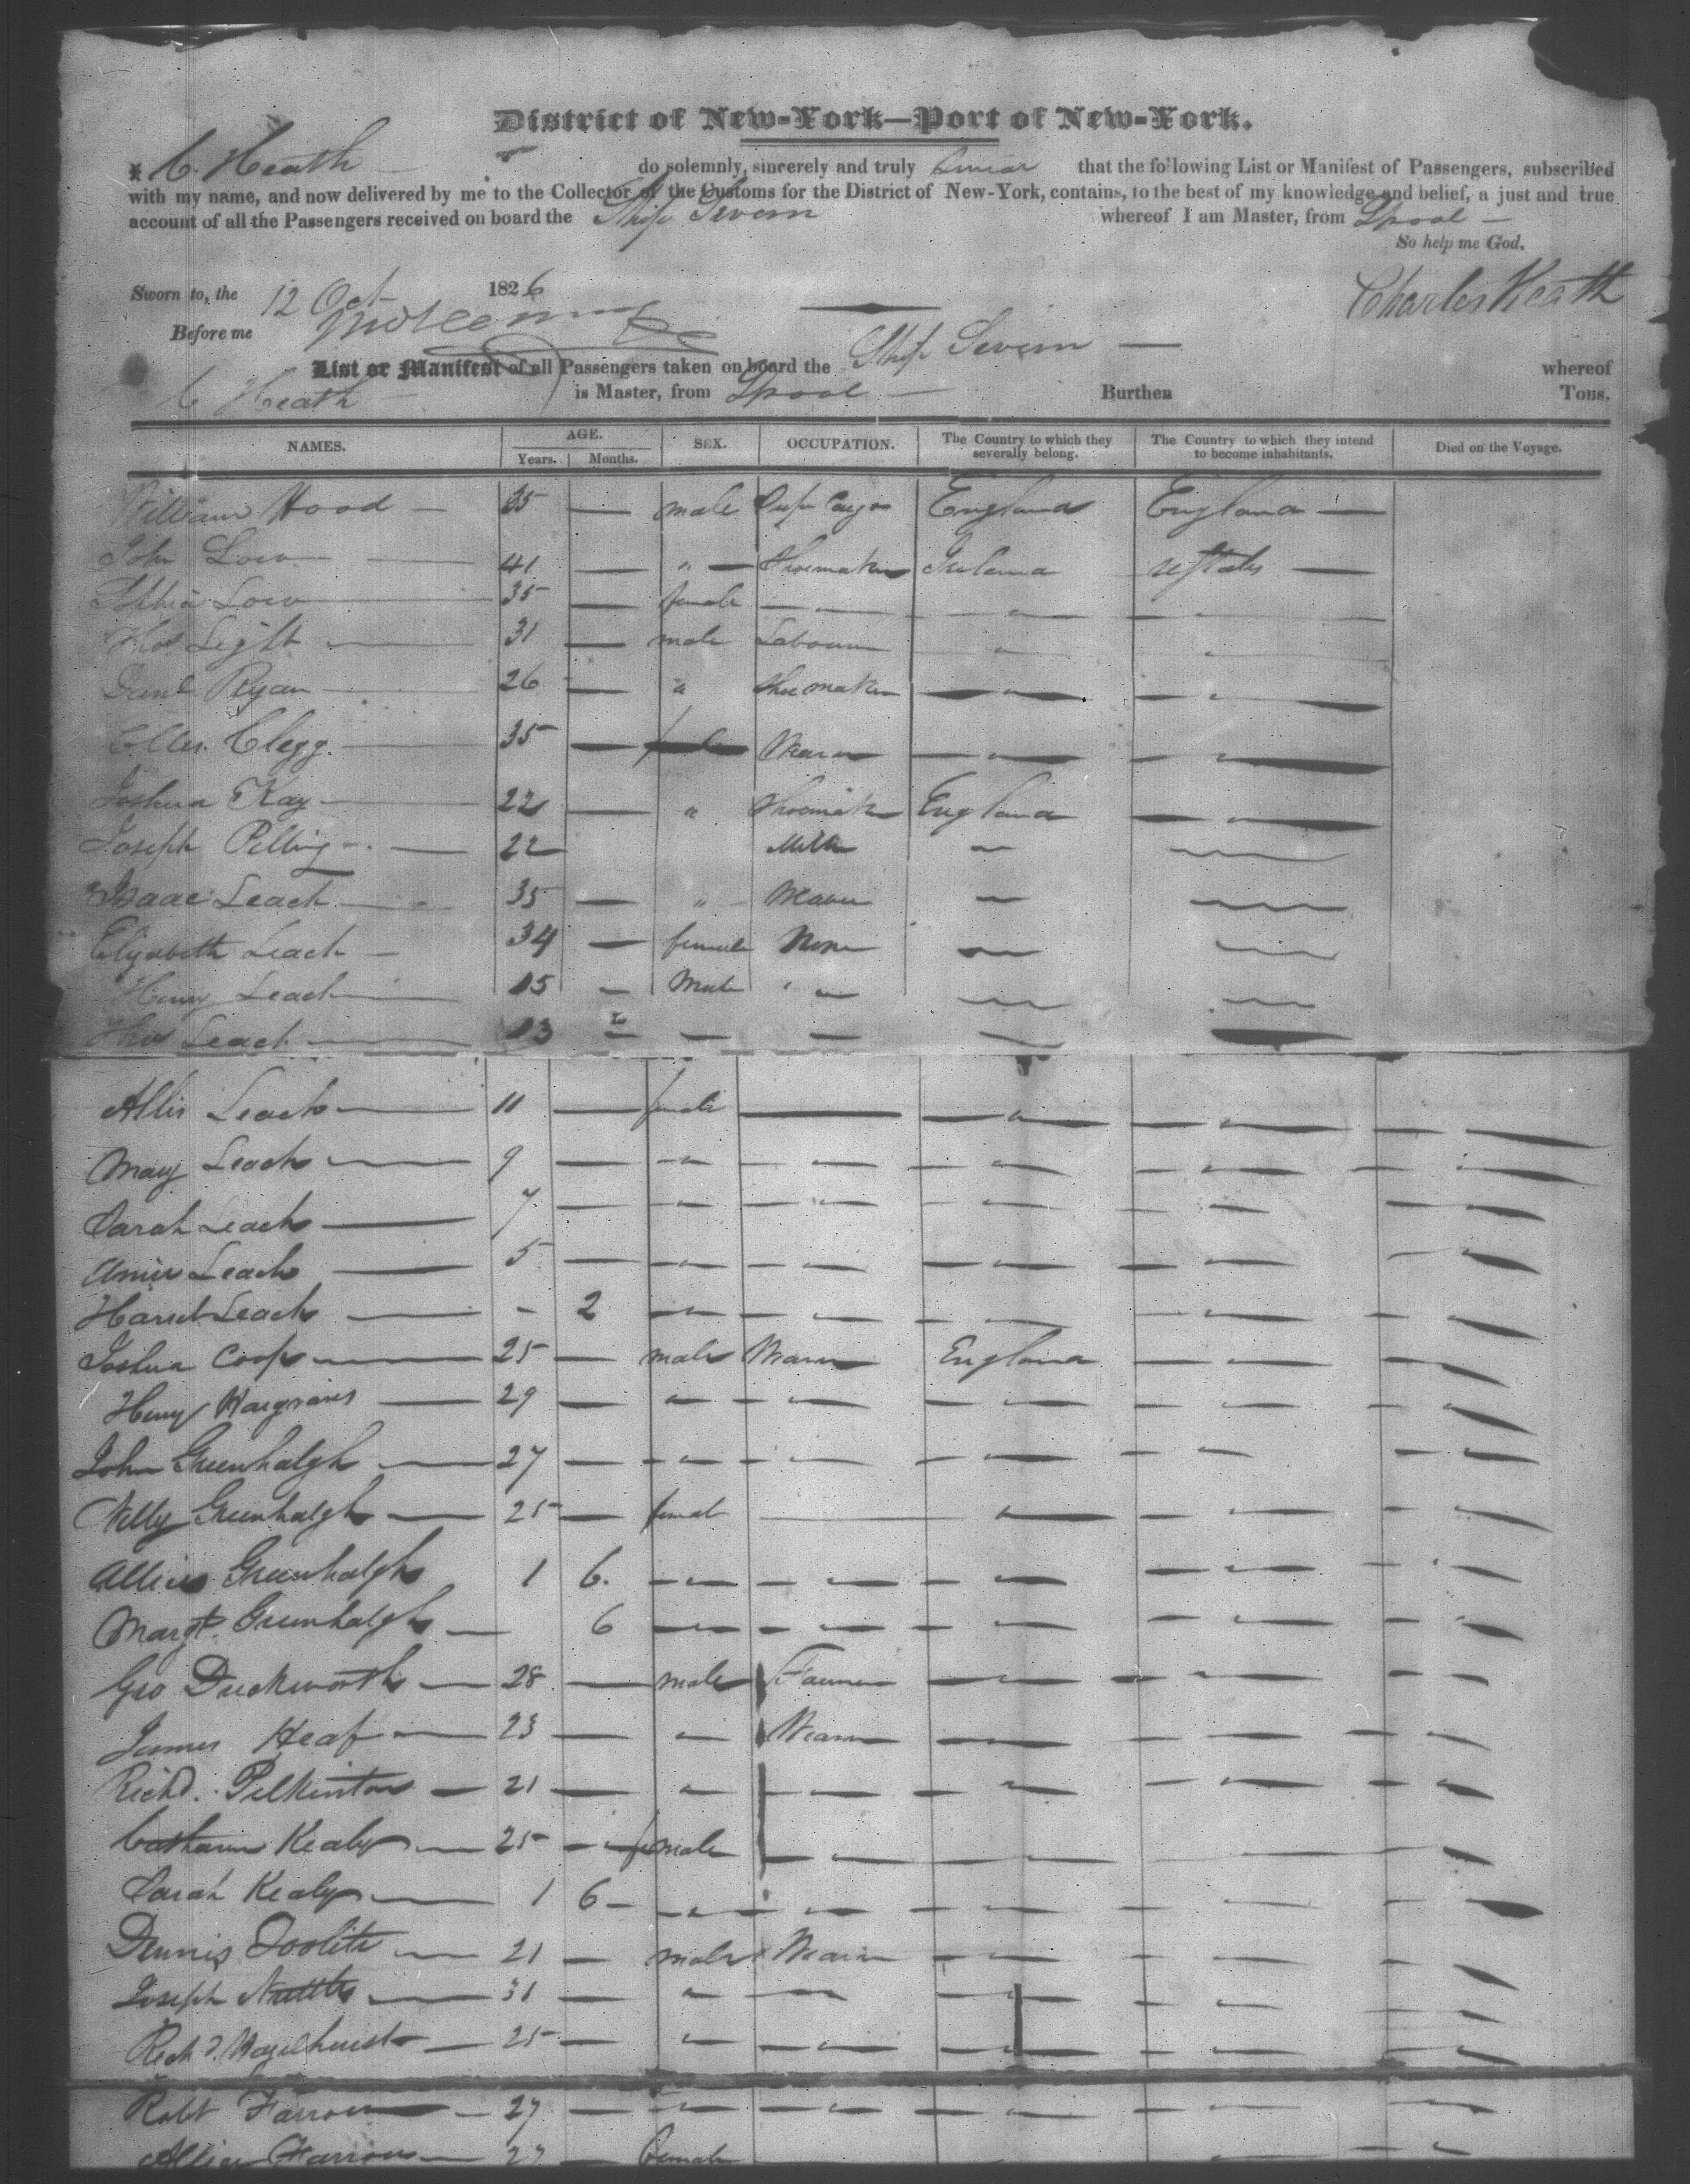 District of New-York—Port of New-York.
C. Heath — do solemnly, sincerely and truly swear that the following List or Manifest of Passengers, subscribed
with my name, and now delivered by me to the Collector of the Customs for the District of New-York, contains, to the best of my knowledge and belief, a just and true
account of all the Passengers received on board the Ship Severn whereof I am Master, from Lpool —
So help me God.
Sworn to, the 12 Oct 1826 Charles Heath
Before me
List or Manifest of all Passengers taken on board the Ship Severn — whereof
C Heath is Master, from Lpool — Burthen Tons.
NAMES. AGE. Years. Months. SEX. OCCUPATION. The Country to which they severally belong. The Country to which they intend to become inhabitants. Died on the Voyage.
William Hood — 35 — male England England —
John Low — 41 — " — Shoemaker Ireland U States —
Low — 35 — female — " — "
Thos Light — 31 — male Labourer " "
Danl Ryan — 26 — " Shoemaker — " — "
Clegg. — 35 — Weaver — " — "
Joshua Kay — 22 — " Shoemaker England — "
Joseph Pilling — 22 Miller
Isaac Leach — 35 — " Weaver —
Elizabeth Leach — 34 — female None —
Henry Leach — 15 — Male " —
Thos Leach — 13 — — —
Allis Leach — 11 — female — " — "
Mary Leach — 9 — " — " — " — "
Sarah Leach — 7 — " — " — " — "
Leach — 5 — " — " — " — "
Leach — - 2 " — " — " — "
Joshua Coop — 25 — male Weaver England — "
Henry Hargraves — 29 — " — " — " — "
John Greenhalgh — 27 — " — " — " — "
Nelly Greenhalgh — 25 — female — " — "
Greenhalgh 1 6. " — " — " — "
Margt. Greenhalgh — 6 " — " — " — "
Geo Duckworth — 28 — male Farmer — " — "
James Heap — 23 — " Weaver — " — "
Richd. Pilkinton — 21 — " — " — " — "
Catharine Kealy — 25 — female — " — " — "
Sarah Kealy — 1 6 — " — " — " — "
Dennis — 21 — male Weaver — " — "
Joseph Nuttle — 31 — " — " — "
Richd. Hazelhurst — 25 — " — " — " — "
Robt Farrow — 27 — " — " — " — "
Farrow — 27 — female